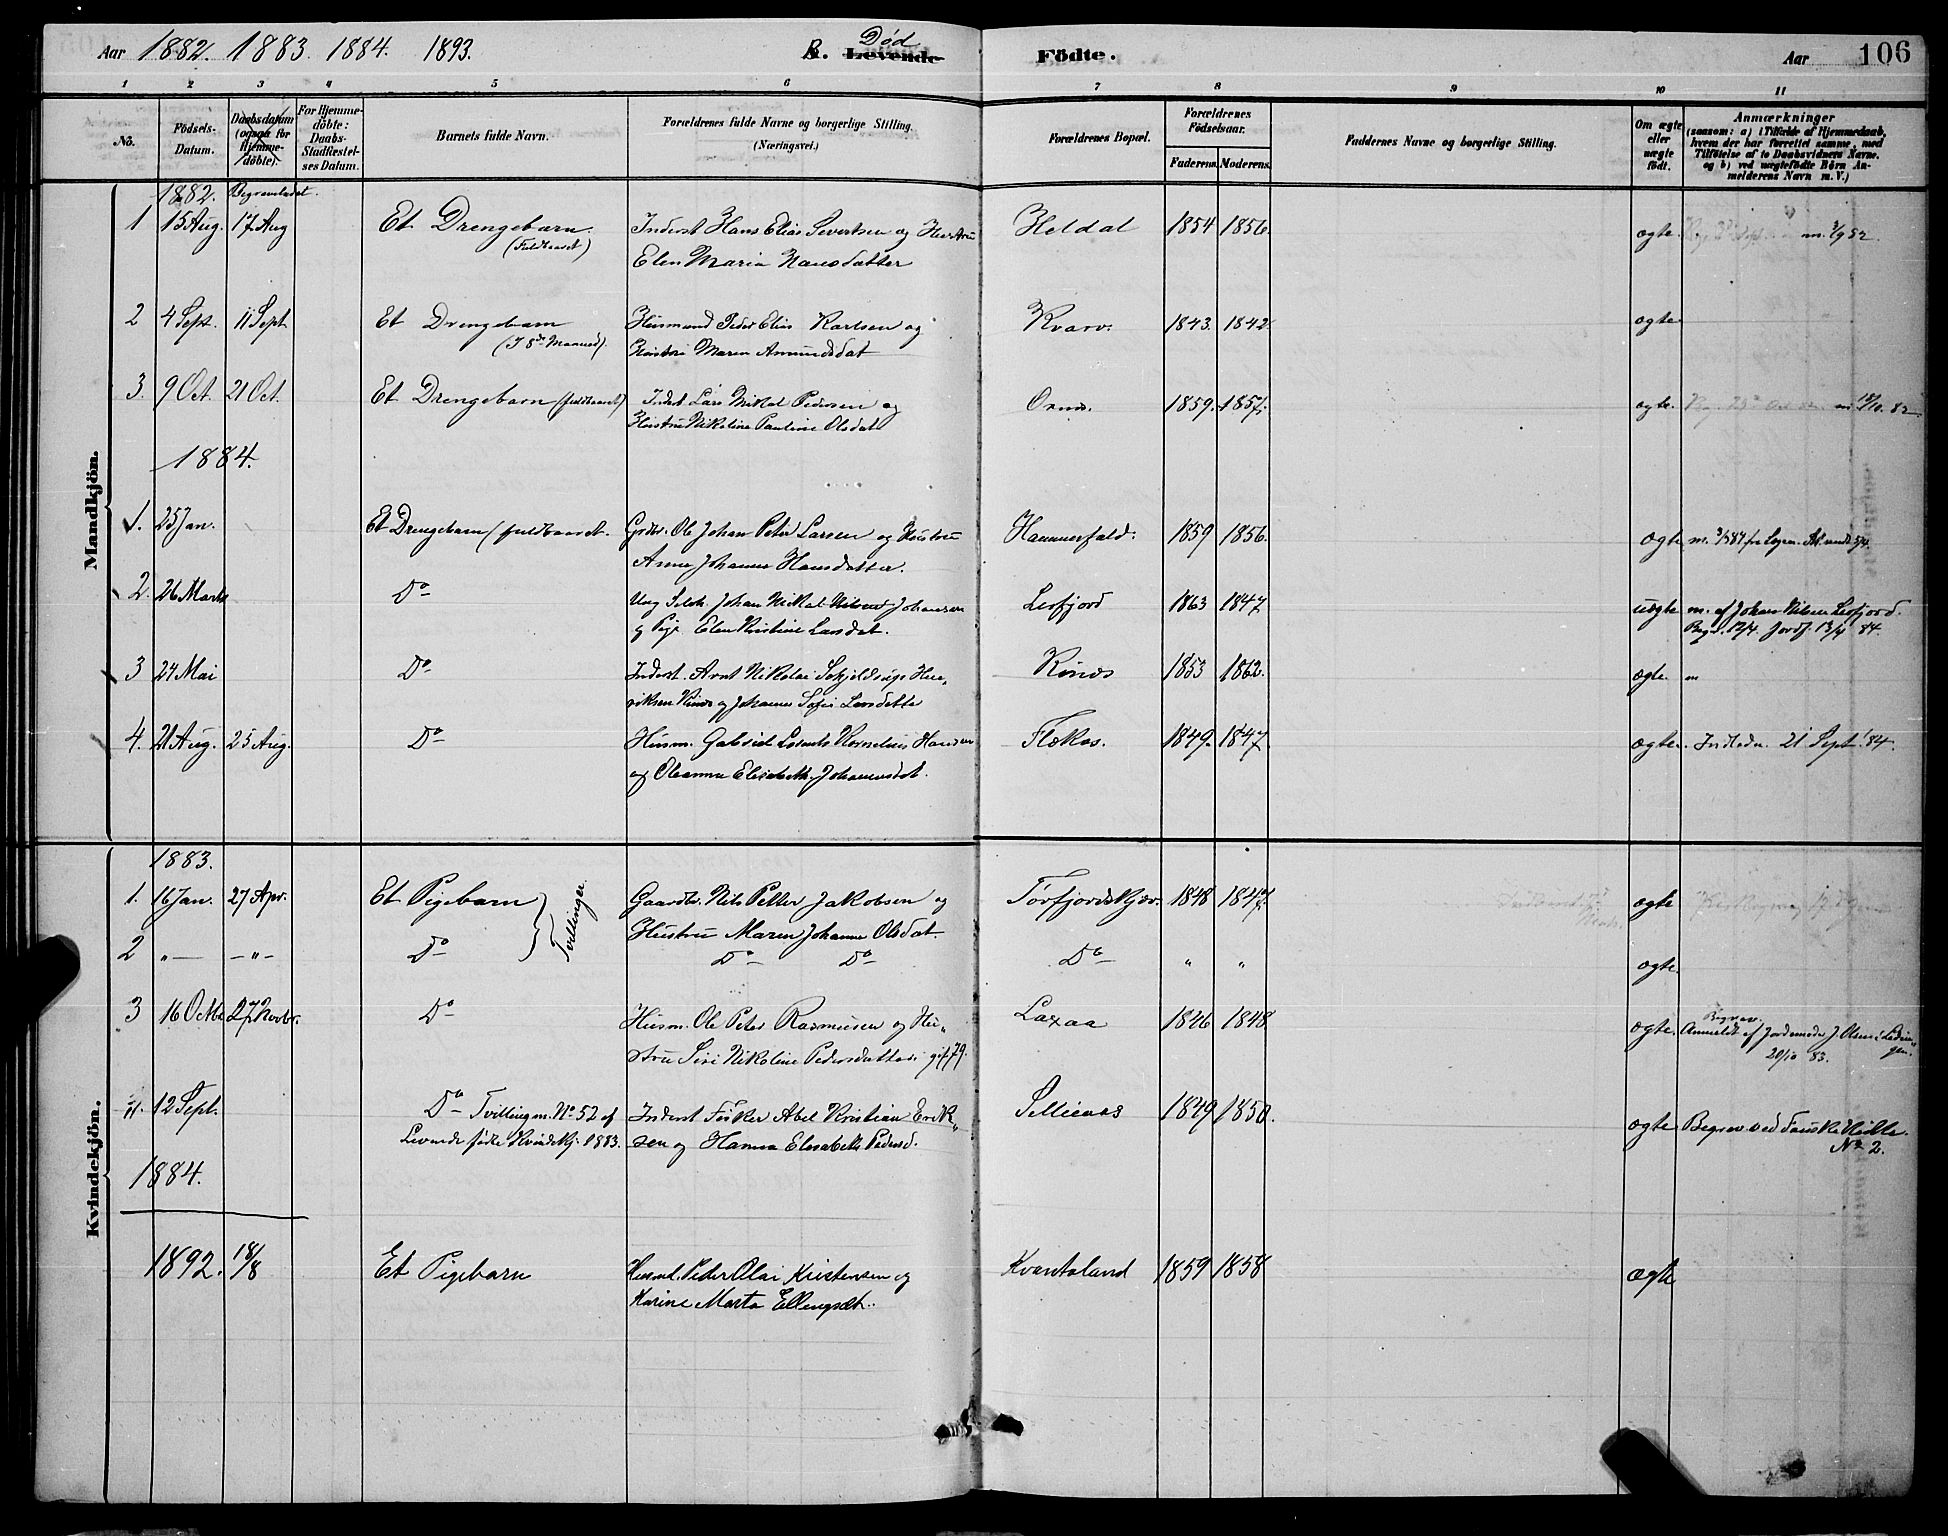 Aar 1882. 1883. 1884. 1893.
B. Död
Levende
Födte.
Aar
106
1 2 3 4 5 6 7 8 9 10 11
No.
Födsels-
Datum.
Daabsdatum
(ogsaa for
Hjemme-
döbte).
For Hjemme-
döbte:
Daabs-
Stadfæstel-
ses Datum.
Barnets fulde Navn.
Forældrenes fulde Navne og borgerlige Stilling.
(Næringsvei.)
Forældrenes Bopæl.
Forældrenes
Födselsaar.
Faderens. Moderens.
Faddernes Navne og borgerlige Stilling.
Om ægte
eller
uægte
födt.
Anmærkninger
(saasom: a) i Tilfælde af Hjemmedaab,
hvem der har forrettet samme, med
Tilföielse af to Daabsvidners Navne.
og b) ved uægtefödte Börn An-
melderens Navn m. V.)
Mandkjön.
1882. Begravelsdat.
1 15 Aug. 17 Aug Et Drengebarn Inderst Hans Elias Sivertsen og Hustru Heldal 1854 1856. ægte.
(Fuldbaaret) Elen Maria Hansdatter
2 4 Sept. 11 Sept Et Drengebarn Husmand Peder Elias Karlsen og Kvarv. 1843. 1842 ægte
(I 8de Maaned). Hustru Maren Amundsdat
3. 9 Oct. 21 Oct. Et Drengebarn (fuldbaaret) Inderst Lars Mikal Pedersen og Ornes. 1859. 1857. ægte. 18/10. 82
Hustru Nikoline Pauline Olsdat
1884.
1. 25 Jan. Et Drengebarn (fuldbaaret. Grdbr. Ole Johan Peter Larsen og Hustru Hammerfald. 1859 1856. ægte
Anne Johanna Hansdatter.
2. 26 Marts Do Ung Selvh. Johan Nikal Nilsen Johansen Leifjord 1863 1847 uægte m. af Johan Nilsen Leifjord.
og Pige Elen Kristine Larsdat. Begr. 12/4 Jordf. 13/4 84.
3 24 Mai Do Inderst. Arnt Nikolai Skjeldrup Hen- Rönes 1853 1862. ægte.
riksen og Johanna Sofie Larsdatter
4. 21 Aug. 25 Aug. Do Husm. Gabriel Lorents Kornelius Hansen Flekas. 1849. 1847. ægte. 21 Sept. 84.
og Oleanna Elisabeth Johannesdat.
Kvindekjön.
1883.
1. 16 Jan. 27 Apr. Et Pigebarn Tvillinger. Gaardbr. Nils Petter Jakobsen og Törfjordskjær. 1848 1847. ægte
Hustru Maren Johanna Olsdat.
2 „ — — „ — Do Do Do Do „ „ ægte.
3 16 Octbr 27 Novbr. Do Husm. Ole Peter Rasmusen og Hu- Laxaa 1826 1848 ægte. Begrav.
stru Siri Nikoline Pedersdatter gift 79. Anmeldt af Jordemoder J. Olsen i
20/10 83.
4. 12 Sept. Do Tvilling m. No 52 af Inderst Fisker Abel Kristian Erik- Sellienæs 1849 1850. ægte Begrav. ved Fauske Kirke.
Levende fødte Kvindekj. 1883. sen og Hanna Elisabeth Pedersd. No 2.
1884.
1892. 18/8 Et Pigebarn Husmd. Peder Olai Kristensen og Kvantoland 1859 1858 ægte
Karine Marta Ellengsdt.